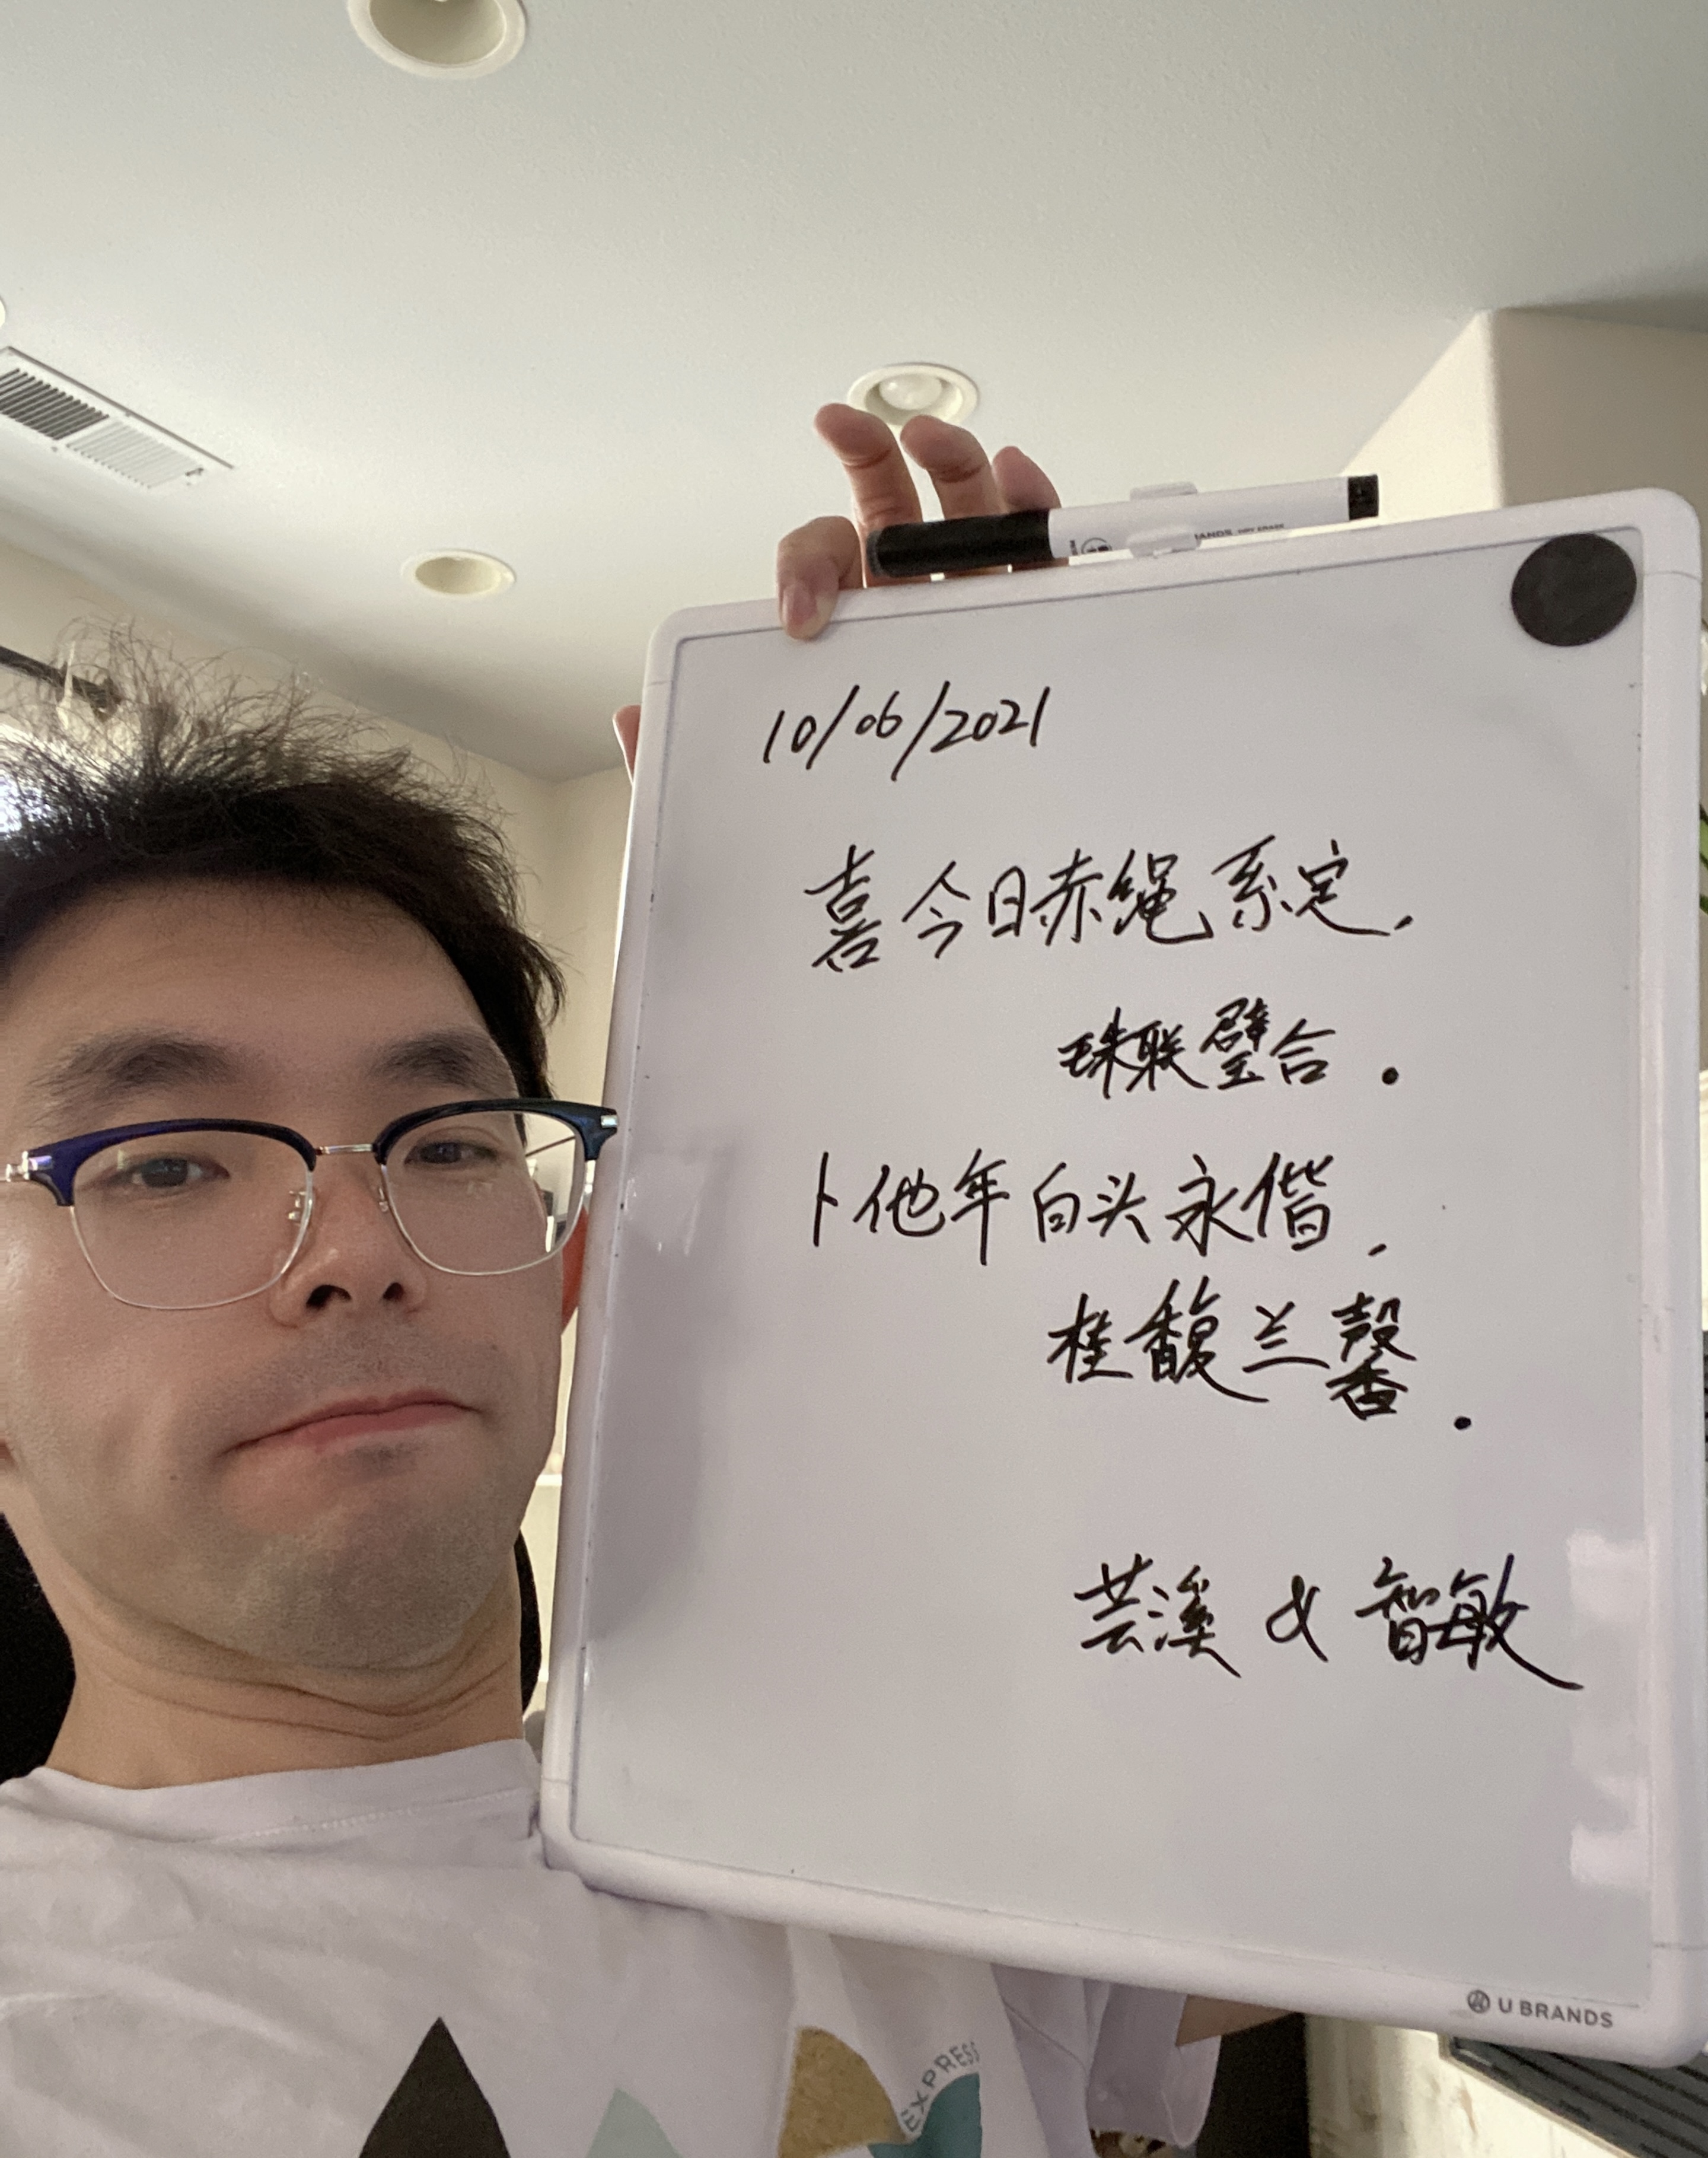 10/06/2021
喜今日赤绳系定，
珠联璧合．
卜他年白头永偕，
桂馥兰馨．
芸溪 & 智敏
U BRANDS
EXPRESS